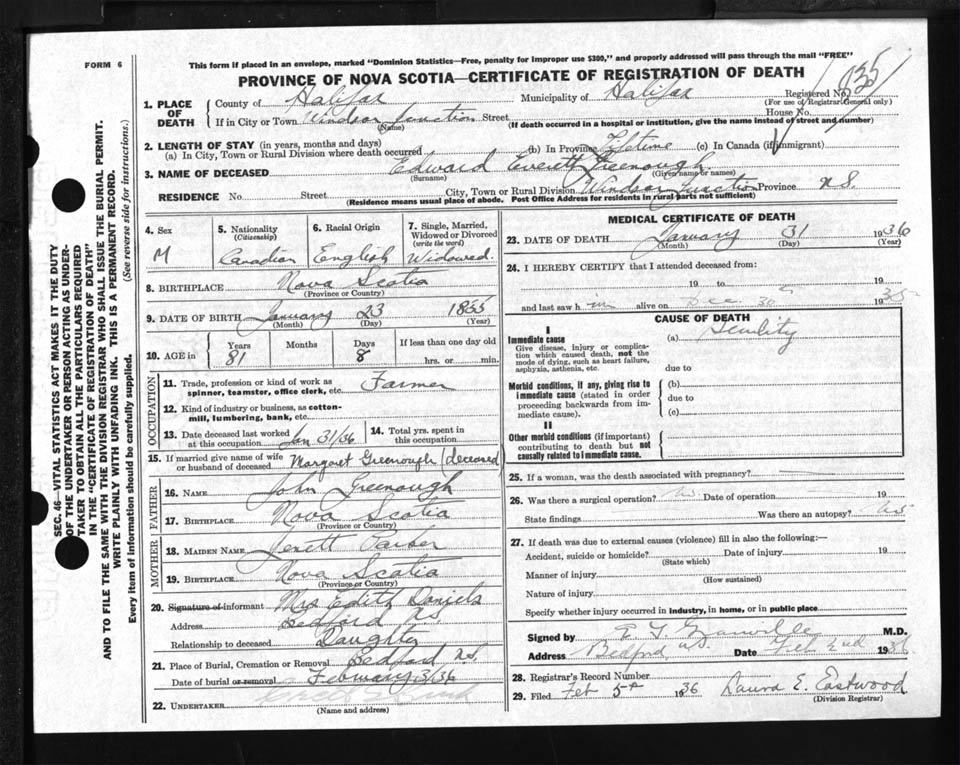 FORM 6
This form if placed in an envelope, marked "Dominion Statistics—Free, penalty for improper use $300," and properly addressed will pass through the mail "FREE"
PROVINCE OF NOVA SCOTIA—CERTIFICATE OF REGISTRATION OF DEATH
SEC. 46—VITAL STATISTICS ACT MAKES IT THE DUTY
OF THE UNDERTAKER OR PERSON ACTING AS UNDER-
TAKER TO OBTAIN ALL THE PARTICULARS REQUIRED
IN THE "CERTIFICATE OF REGISTRATION OF DEATH"
AND TO FILE THE SAME WITH THE DIVISION REGISTRAR WHO SHALL ISSUE THE BURIAL PERMIT.
WRITE PLAINLY WITH UNFADING INK. THIS IS A PERMANENT RECORD.
Every item of information should be carefully supplied. (See reverse side for instructions.)
1. PLACE OF DEATH
County of Halifax Municipality of Halifax Registered No.
(For use of Registrar General only)
If in City or Town Windsor Junction Street House No.
(Name) (If death occurred in a hospital or institution, give the name instead of street and number)
2. LENGTH OF STAY (in years, months and days)
(a) In City, Town or Rural Division where death occurred (b) In Province Lifetime (c) In Canada (if immigrant)
3. NAME OF DECEASED Edward Everett Greenough
(Surname) (Given name or names)
RESIDENCE No. Street City, Town or Rural Division Windsor Junction Province N.S.
(Residence means usual place of abode. Post Office Address for residents in rural parts not sufficient)
4. Sex 5. Nationality (Citizenship) 6. Racial Origin 7. Single, Married, Widowed or Divorced (write the word)
M Canadian English Widowed.
8. BIRTHPLACE Nova Scotia
(Province or Country)
9. DATE OF BIRTH January 23 1855
(Month) (Day) (Year)
10. AGE in Years Months Days If less than one day old
81 8 hrs. or min.
OCCUPATION
11. Trade, profession or kind of work as spinner, teamster, office clerk, etc. Farmer
12. Kind of industry or business, as cotton-mill, lumbering, bank, etc.
13. Date deceased last worked at this occupation Jan 31/36 14. Total yrs. spent in this occupation
15. If married give name of wife or husband of deceased Margaret Greenough (deceased
FATHER
16. NAME John Greenough
17. BIRTHPLACE Nova Scotia
(Province or Country)
MOTHER
18. MAIDEN NAME
19. BIRTHPLACE Nova Scotia
(Province or Country)
20. Signature of informant Mrs Edith Daniels
Address Bedford NS
Relationship to deceased Daughter
21. Place of Burial, Cremation or Removal Bedford N.S.
Date of burial or removal February 3/36
22. UNDERTAKER
(Name and address)
MEDICAL CERTIFICATE OF DEATH
23. DATE OF DEATH January 31 1936
(Month) (Day) (Year)
24. I HEREBY CERTIFY that I attended deceased from:
19 to 19
and last saw h im alive on Dec 30 1935
CAUSE OF DEATH
I
Immediate cause (a) Senility
Give disease, injury or complica-
tion which caused death, not the
mode of dying, such as heart failure,
asphyxia, asthenia, etc. due to
Morbid conditions, if any, giving rise to (b)
immediate cause (stated in order due to
proceeding backwards from im-
mediate cause). (c)
II
Other morbid conditions (if important)
contributing to death but not
causally related to immediate cause.
25. If a woman, was the death associated with pregnancy?
26. Was there a surgical operation? No Date of operation 19
State findings Was there an autopsy? No
27. If death was due to external causes (violence) fill in also the following:—
Accident, suicide or homicide? Date of injury 19
(State which)
Manner of injury
(How sustained)
Nature of injury
Specify whether injury occurred in industry, in home, or in public place
Signed by M.D.
Address Bedford, N.S. Date Feb 2nd 1936
28. Registrar's Record Number
29. Filed Feb 5th 1936 Laura E. Eastwood
(Division Registrar)